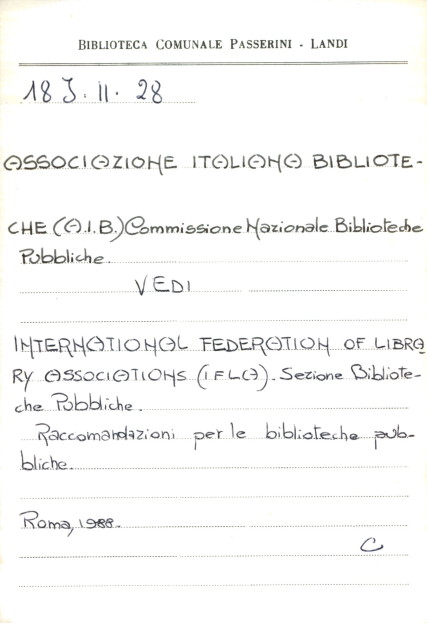 BIBLIOTECA COMUNALE PASSERINI - LANDI
18 J. II. 28
ASSOCIAZIONE ITALIANA BIBLIOTE-
CHE (A.I.B.) Commissione Nazionale Biblioteche
Pubbliche.
VEDI
INTERNATIONAL FEDERATION OF LIBRA
RY ASSOCIATIONS (IFLA). Sezione Bibliote-
che Pubbliche.
Raccomandazioni per le biblioteche pub-
bliche.
Roma, 1988.
C